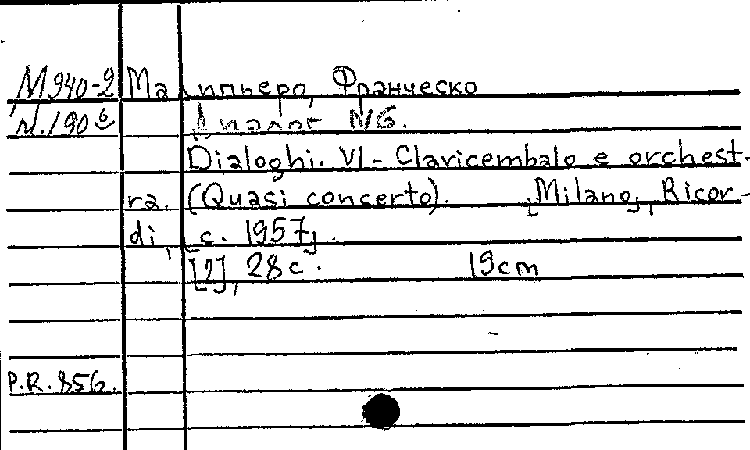 М940-2 Малипьеро, Франческо
м.190б Диалог №6.
Dialoghi. VI - Clavicembalo e orchest-
ra. (Quasi concerto). [Milano], Ricor-
di, [c. 1957].
[?], 28 c. 19cm
P.R. 856.